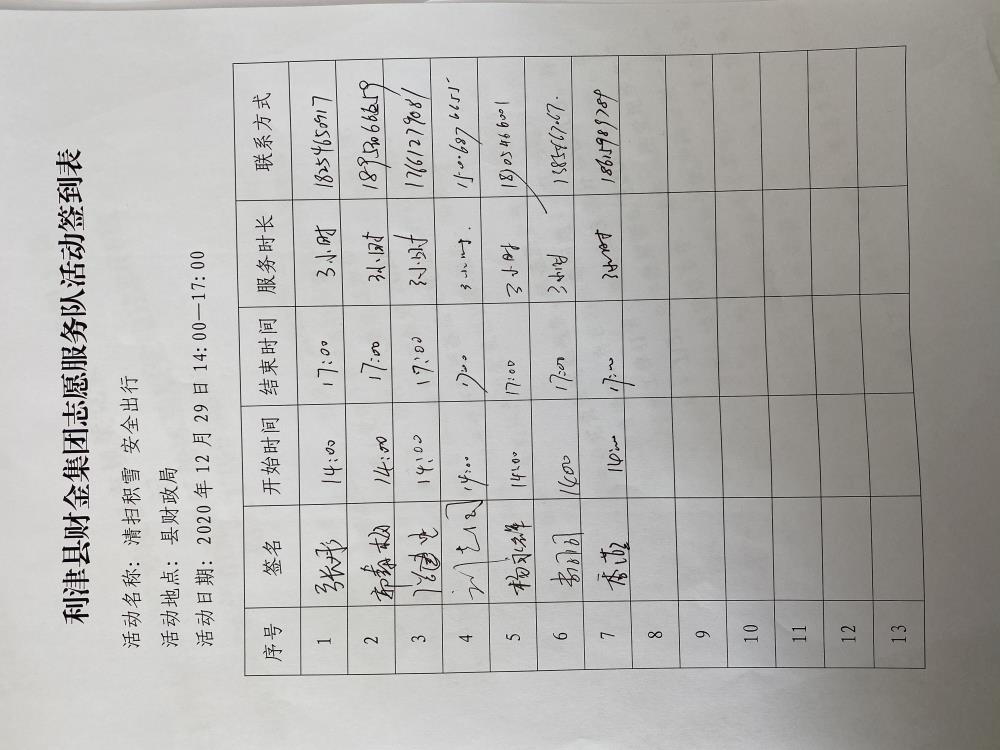 利津县财金集团志愿服务队活动签到表
活动名称：清扫积雪 安全出行
活动地点：县财政局
活动日期：2020年12月29日14:00—17:00
序号 签名 开始时间 结束时间 服务时长 联系方式
1 张彤 14:00 17:00 3小时
2 14:00 17:00 3小时
3 14:00 17:00 3小时 17661279081
4 14:00 17:00 3小时 15006876655
5 杨永祥 14:00 17:00 3小时 18905466001
6 1400 17:00 3小时
7 14:00 17:00 3小时 18615983789
8
9
10
11
12
13